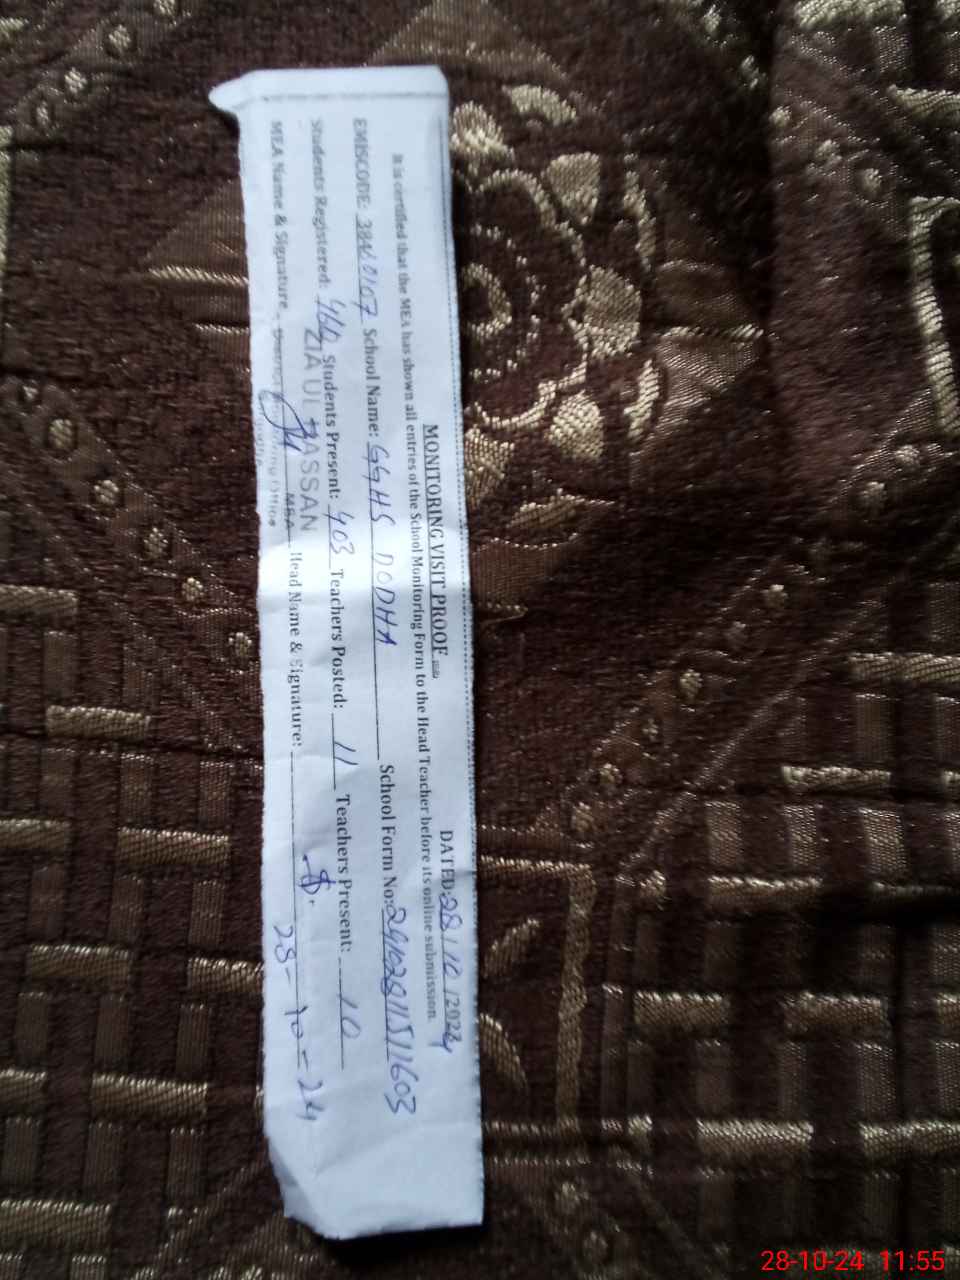 MONITORING VISIT PROOF
DATED: 28/10/2024
It is certified that the MEA has shown all entries of the School Monitoring Form to the Head Teacher before its online submission.
EMISCODE: 38460107 School Name: GGHS DODHA School Form No: 24102811511603
Students Registered: 464 Students Present: 403 Teachers Posted: 11 Teachers Present: 10
ZIA UL HASSAN
MEA Name & Signature MEA Head Name & Signature:
28-10-24
28-10-24 11:55